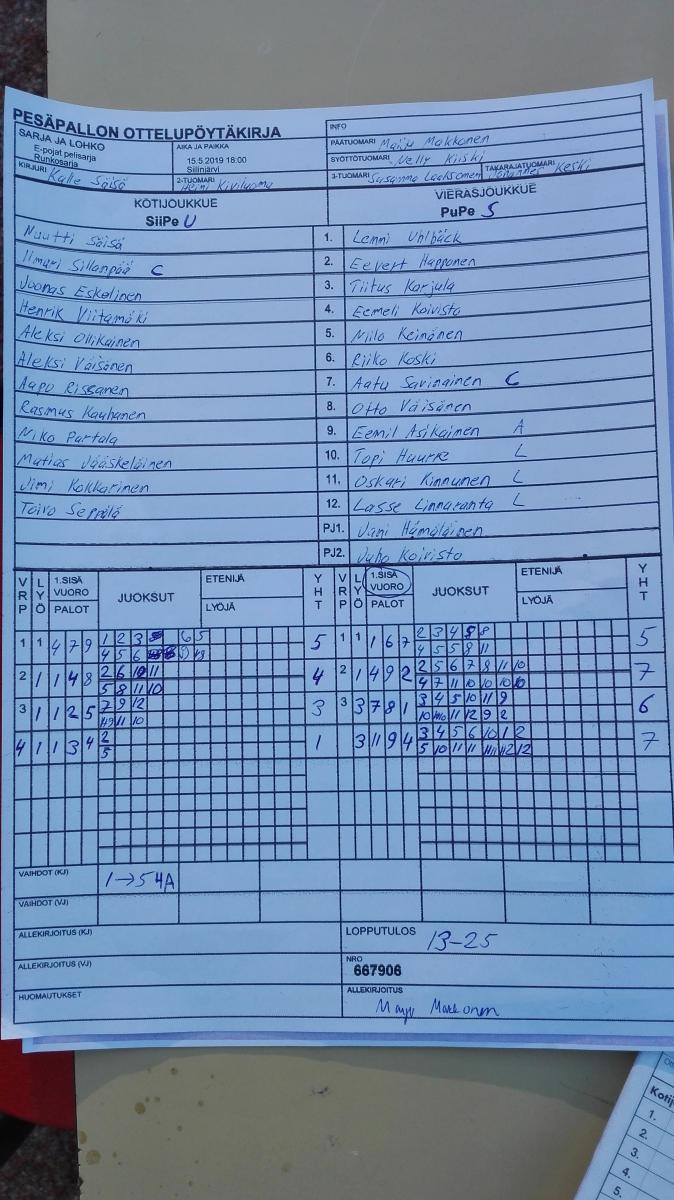 PESÄPALLON OTTELUPÖYTÄKIRJA
INFO
SARJA JA LOHKO
E-pojat pelisarja
Runkosarja
AIKA JA PAIKKA
15.5.2019 18:00
Siilinjärvi
PÄÄTUOMARI Maiju Makkonen
SYÖTTÖTUOMARI Kiiski
KIRJURI Kalle Säisä
2-TUOMARI Heini Kiviluoma
3-TUOMARI Susanna Laaksonen
TAKARAJATUOMARI Johannes Keski
KOTIJOUKKUE
SiiPe U
VIERASJOUKKUE
PuPe S
Nuutti Säisä 1. Lenni Uhlbäck
Ilmari Sillanpää C 2. Eevert Happonen
Joonas Eskelinen 3. Tiitus Karjula
Henrik Viitamäki 4. Eemeli Koivisto
Aleksi Ollikainen 5. Niilo Keinänen
Aleksi Väisänen 6. Riiko Koski
Aapo Rissanen 7. Aatu Savinainen C
Rasmus Kauhanen 8. Otto Väisänen
Niko Partala 9. Eemil Asikainen A
Matias Jääskeläinen 10. Topi Huurre L
Jimi Kokkarinen 11. Oskari Kinnunen L
Toivo Seppälä 12. Lasse Linnaranta L
PJ1. Jani Hämäläinen
PJ2. Juho Koivisto
VRP LYÖ 1.SISÄ VUORO PALOT JUOKSUT ETENIJÄ LYÖJÄ YHT VRP LYÖ 1.SISÄ VUORO PALOT JUOKSUT ETENIJÄ LYÖJÄ YHT
1 1 4 7 9 1 2 3 6 5 5 1 1 1 6 7 2 3 4 5 8 5
4 5 6 4 5 5 8 11
2 1 1 4 8 2 6 10 11 4 2 1 4 9 2 2 5 6 7 8 11 10 7
5 8 11 10 4 7 11 10 10 10
3 1 1 2 5 7 9 12 3 3 3 7 8 1 3 4 5 10 11 9 6
11 10 10 11 12 9 2
4 1 1 3 4 2 1 3 11 9 4 3 4 5 6 10 1 2 7
5 5 10 11 11 11 12 12
VAIHDOT (KJ) 1→5 4A
VAIHDOT (VJ)
ALLEKIRJOITUS (KJ) LOPPUTULOS 13-25
ALLEKIRJOITUS (VJ) NRO
667906
HUOMAUTUKSET ALLEKIRJOITUS
Makkonen
Kotij
1.
2.
3.
4.
5.